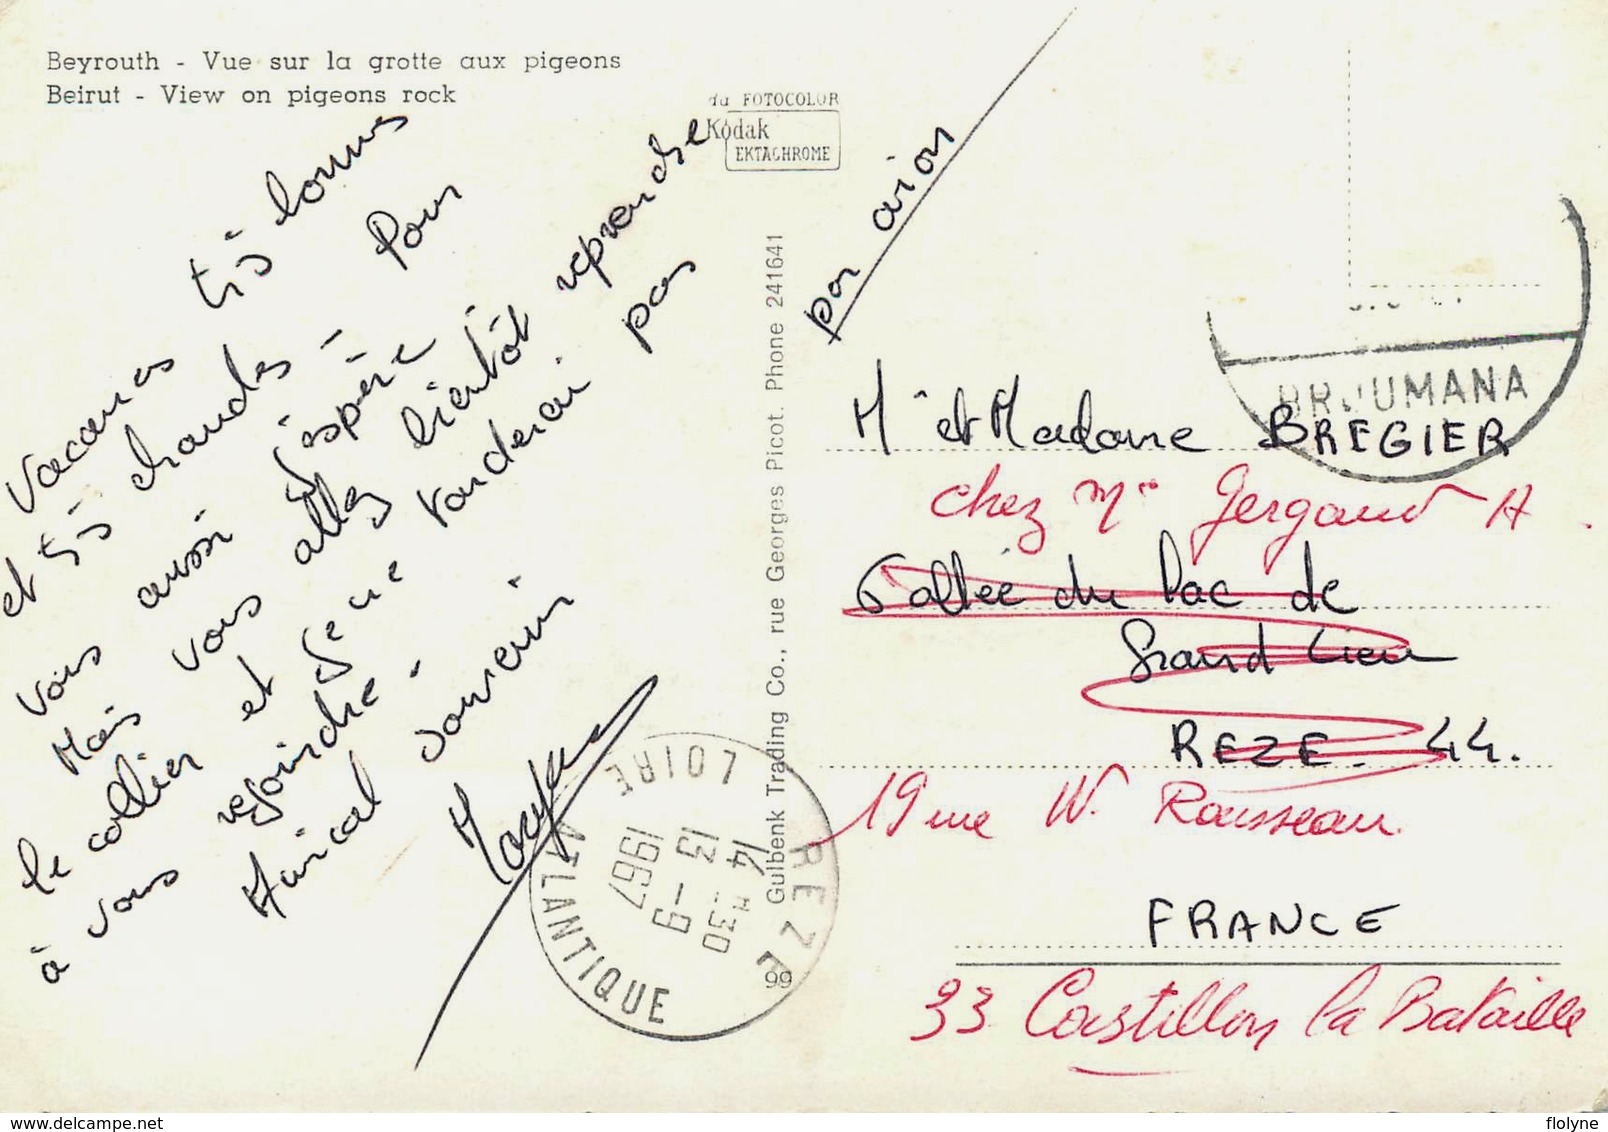 Beyrouth - Vue sur la grotte aux pigeons
Beirut - View on pigeons rock
FOTOCOLOR
Kodak
EKTACHROME
Vacances très bonnes
et très chaudes - Pour
vous aussi j'espère !
Mais vous allez bientôt reprendre
le collier et je ne tarderai pas
à vous rejoindre -
Amical souvenir
par avion
Gulbenk Trading Co., rue Georges Picot. Phone 241641
99
BROUMANA
REZE
LOIRE ATLANTIQUE
14 H30
13 - 9
1967
Mr et Madame BREGIER
chez Mr Gergaud A.
allée du Lac de
Grand Lieu
REZE. 44.
19 rue W. Rousseau.
FRANCE
33 Castillon la Bataille
flolyne